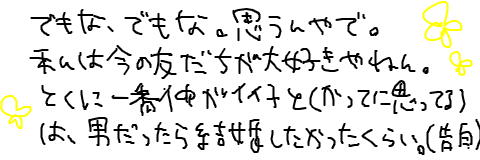 でもな、でもな。思うんやで。
私は今の友だちが大好きやねん。
とくに一番仲がイイ子と(かってに思ってる)
は、男だったら結婚したかったくらい。(告白)